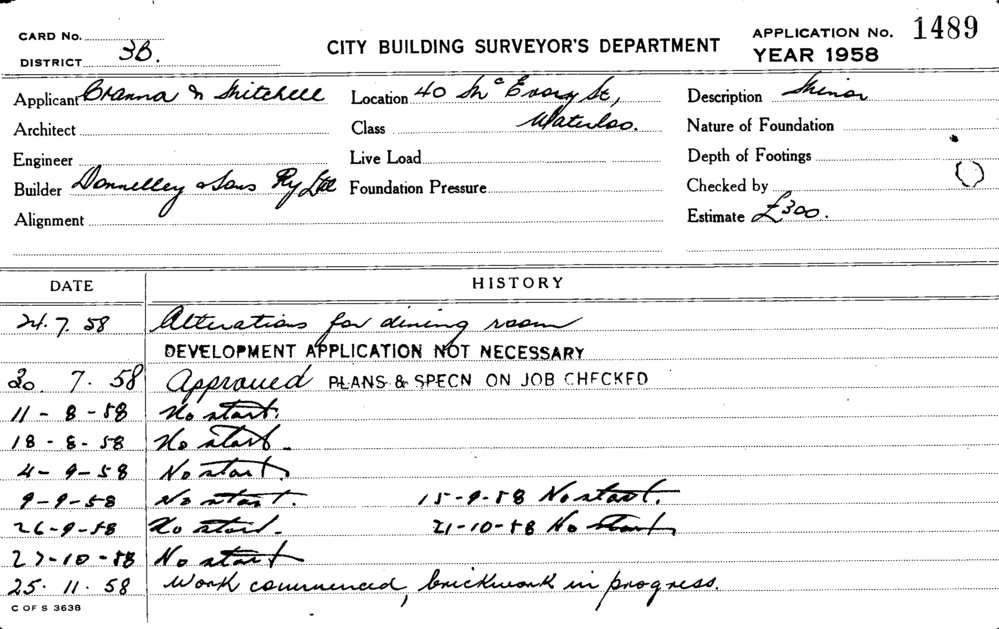 CARD No.
DISTRICT 3B.
CITY BUILDING SURVEYOR'S DEPARTMENT
APPLICATION No. 1489
YEAR 1958
Applicant Cranna & Mitchell Location 40 McEvoy St, Description Minor
Architect Class Waterloo. Nature of Foundation
Engineer Live Load Depth of Footings
Builder Donnelley & Sons Pty Ltd Foundation Pressure Checked by
Alignment Estimate £300.
DATE HISTORY
24.7.58 Alterations for dining room
DEVELOPMENT APPLICATION NOT NECESSARY
30.7.58 Approved PLANS & SPECN ON JOB CHECKED
11-8-58 No start.
18-8-58 No start.
4-9-58 No start.
9-9-58 No start. 15-9-58 No start.
26-9-58 No start. 21-10-58 No start,
27-10-58 No start
25.11.58 Work commenced, brickwork in progress.
C OF S 3638